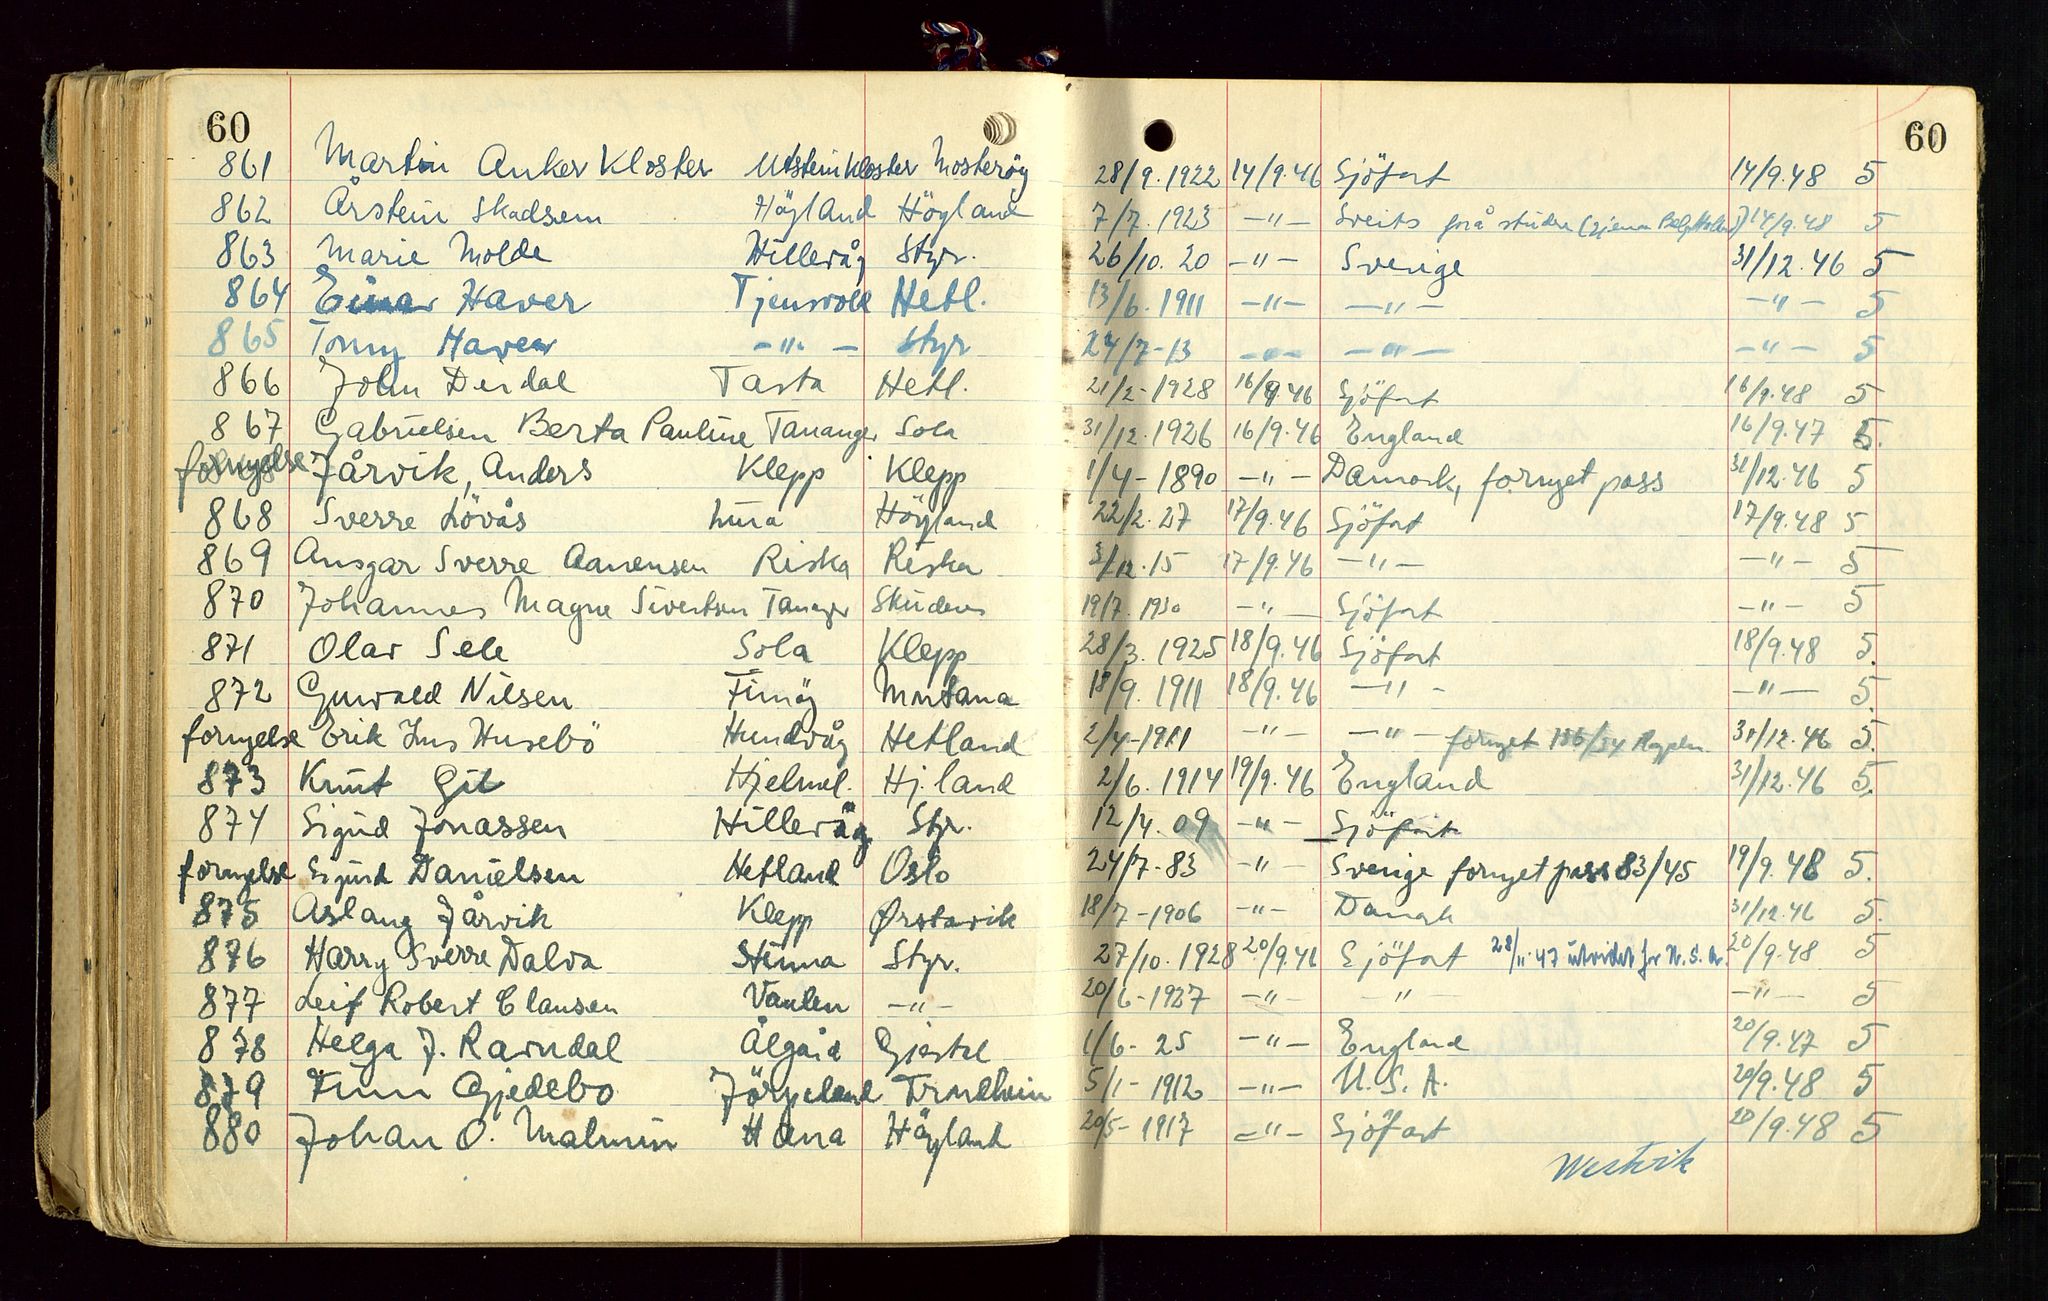 60 60
861 Martin Anker Kloster Utstein Kloster Mosterøy 28/9.1922 14/9.46 Sjöfart 14/9.48 5
862 Årstein Skadsem Höyland Höyland 7/7.1923 -"- Sveits på studie 14/9.48 5
863 Marie Molde Hillevåg Styr. 26/10.20 -"- Sverige 31/12.46 5
864 Einar Haver Tjensvoll Hetl. 13/6.1911 -"- -"- -"- 5
865 Tonny Haver -"- Styr 24/7-13 -"- -"- -"- 5
866 John Dirdal Tasta Hetl. 21/2-1928 16/9.46 Sjöfart 16/9.48 5
867 Gabrielsen Berta Pauline Tananger Sola 31/12.1926 16/9.46 England 16/9.47 5.
fornyelse Jårvik, Anders Klepp Klepp 1/4-1890 -"- Damark, fornyet pass 31/12.46 5
868 Sverre Lövås Lura Höyland 22/2.27 17/9.46 Sjöfart 17/9.48 5
869 Ansgar Sverre Aanensen Riska Riska 3/12.15 17/9.46 -"- -"- 5
870 Johannes Magne Sivertsen Tananger Skudenes 19/7.1930 -"- Sjöfart -"- 5
871 Olav Sele Sola Klepp 28/3.1925 18/9.46 Sjöfart 18/9.48 5.
872 Gunvald Nilsen Finöy Montana 18/9.1911 18/9.46 -"- -"- 5.
fornyelse Erik Jens Husebö Hundvåg Hetland 2/4-1911 -"- -"- fornyet 31/12.46 5.
873 Knut Git Hjelmel. Hj.land 2/6.1914 19/9.46 England 31/12.46 5.
874 Sigurd Jonassen Hillevåg Styr. 12/4.09 -"- Sjöfart
fornyelse Sigurd Danielsen Hetland Oslo 24/7-83 -"- Sverige fornyet pass 83/45 19/9.48 5.
875 Aslaug Jårvik Klepp Ørstavik 18/7-1906 -"- Danmark 31/12.46 5.
876 Harry Sverre Dalva Stinna Styr. 27/10.1928 20/9.46 Sjöfart 28/11.47 utvidet for U.S.A. 20/9.48 5
877 Leif Robert Clausen Vaulen -"- 20/6-1927 -"- -"- -"- 5
878 Helga J. Ravndal Ålgård Gjestal 1/6-25 -"- England 20/9.47 5
879 Finn Gjedebo Jörpeland Trondheim 5/1-1912 -"- U.S.A. 20/9.48 5
880 Johan O. Malmin Hana Höyland 20/5-1917 -"- Sjöfart 20/9.48 5
Westvik